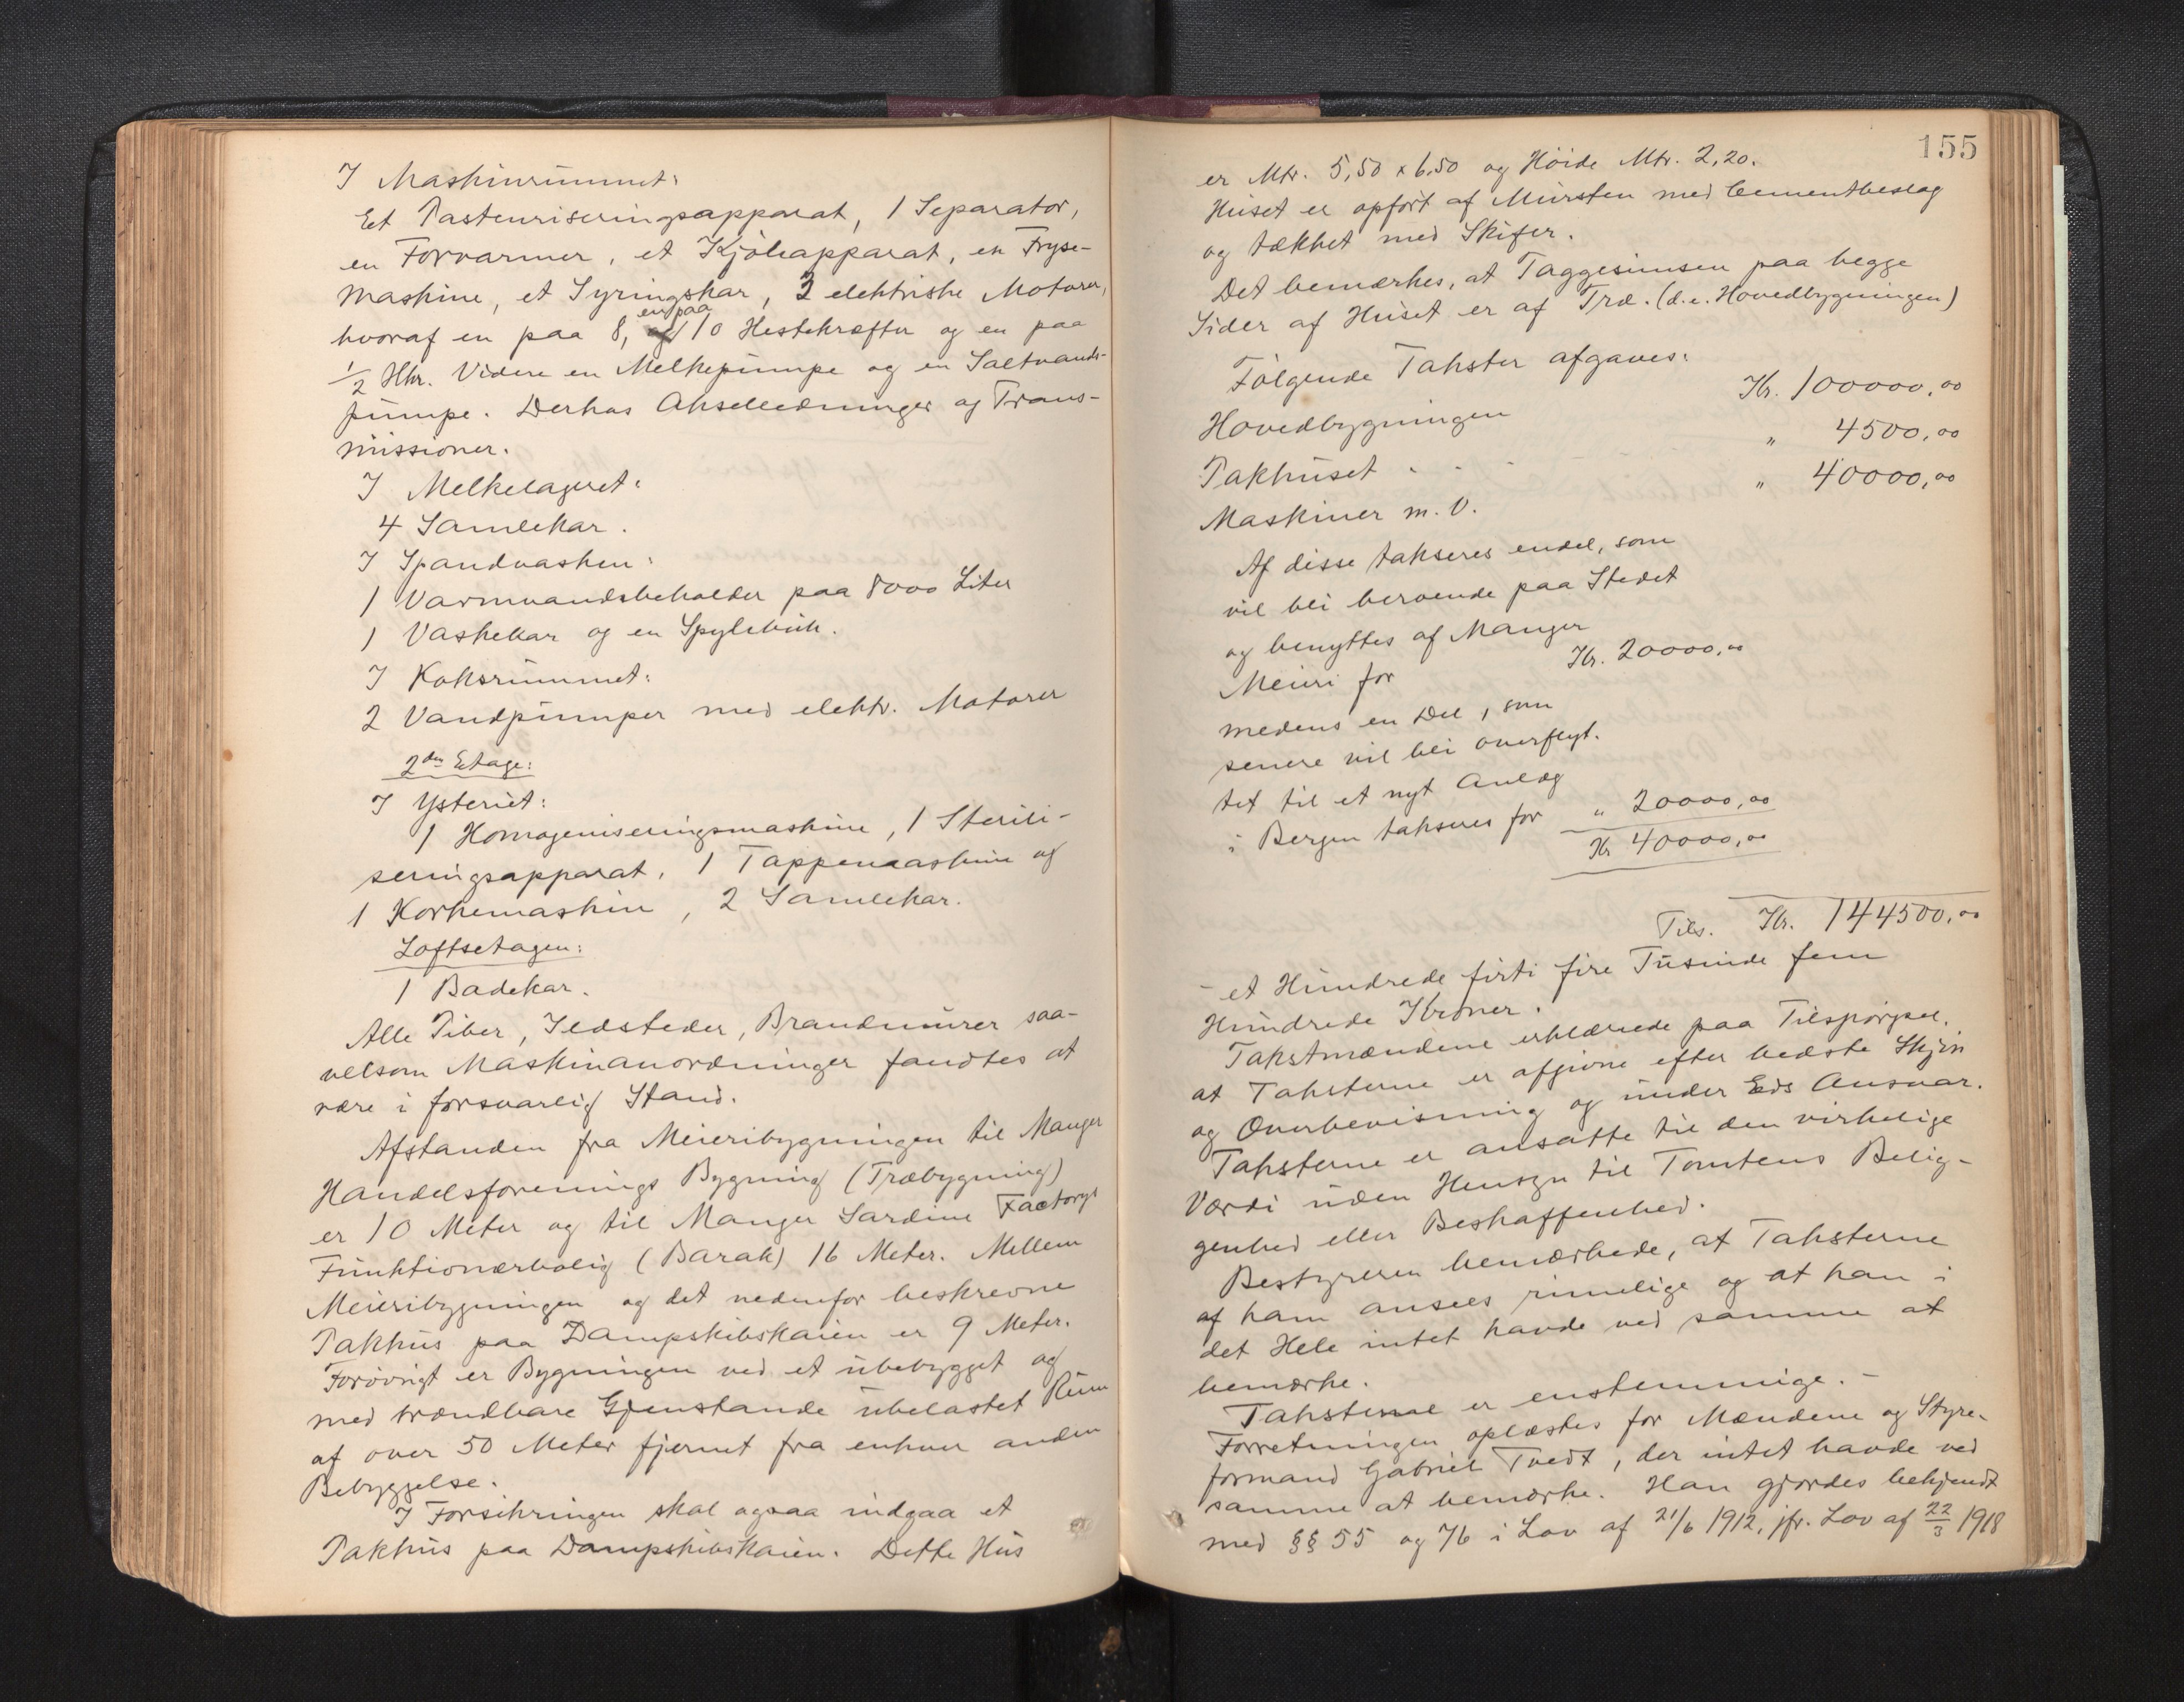 I Maskinrummet:
Et Pasteuriseringsapparat, 1 Separator,
en Forvarmer, et Kjøleapparat, en Fryse-
maskine, et Syringskar, 3 elektriske Motorer,
hvoraf en paa 8, en paa 10 Hestekræfter og en paa
1/2 Hkr. Videre en Melkepumpe og en Saltvands-
pumpe. Derhos Akselledninger og Trans-
missioner.
I Melkelageret:
4 Samlekar.
I Spandvasken:
1 Varmvandsbeholder paa 8000 Liter
1 Vaskekar og en Spylebuk.
I Koksrummet:
2 Vandpumper med elektr. Motorer
2den Etage:
I Ysteriet:
1 Homogeniseringsmaskine, 1 Sterili-
seringsapparat, 1 Tappemaskine og
1 Korkemaskin, 2 Samlekar.
Loftsetagen:
1 Badekar.
Alle Piber, Ildsteder, Brandmurer saa-
velsom Maskinanordninger fandtes at
være i forsvarlig Stand.
Afstanden fra Meieribygningen til Manger
Handelsforenings Bygning (Træbygning)
er 10 Meter og til Manger Sardine Factorys
Funktionærbolig (Barak) 16 Meter. Mellem
Meieribygningen og det nedenfor beskrevne
Pakhus paa Dampskibskaien er 9 Meter.
Forøvrigt er Bygningen ved et ubebygget og
med brændbare Gjenstande ubelastet Rum
af over 50 Meter fjernet fra enhver anden
Bebyggelse.
I Forsikringen skal ogsaa indgaa et
Pakhus paa Dampskibskaien. Dette Hus
155
er Mtr. 5,50 x 6,50 og Høide Mtr. 2,20.
Huset er opført af Mursten med Cementbeslag
og tækket med Skifer.
Det bemærkes, at Taggesimsen paa begge
Sider af Huset er af Træ. (d.e. Hovedbygningen)
Følgende Takster afgaves:
Hovedbygningen Kr. 100000,00
Pakhuset . . . " 4500,00
Maskiner m. V. " 40000,00
Af disse takseres endel, som
vil bli beroende paa Stedet
og benyttes af Manger
Meieri for Kr. 20000,00
medens en Del, som
senere vil bli overflyt-
tet til et nyt Anlæg
i Bergen takseres for " 20000,00
Kr 40000,00
Tils. Kr. 144500,00
- et Hundrede firti fire Tusinde fem
Hundrede Kroner.
Takstmændene erklærede paa Tilspørgsel,
at Taksterne er afgivne efter bedste Skjøn
og Overbevisning og under Eds Ansvar.
Taksterne er ansatte til den virkelige
Værdi uden Hensyn til Tomtens Belig-
genhed eller Beskaffenhed.
Bestyreren bemærkede, at Taksterne
af ham ansees rimelige og at han i
det Hele intet havde ved samme at
bemærke.
Taksterne er enstemmige. -
Forretningen oplæstes for Mændene og Styre-
formand Gabriel Tvedt, der intet havde ved
samme at bemærke. Han gjordes bekjendt
med §§ 55 og 76 i Lov af 21/6 1912, jfr. Lov af 22/3 1918